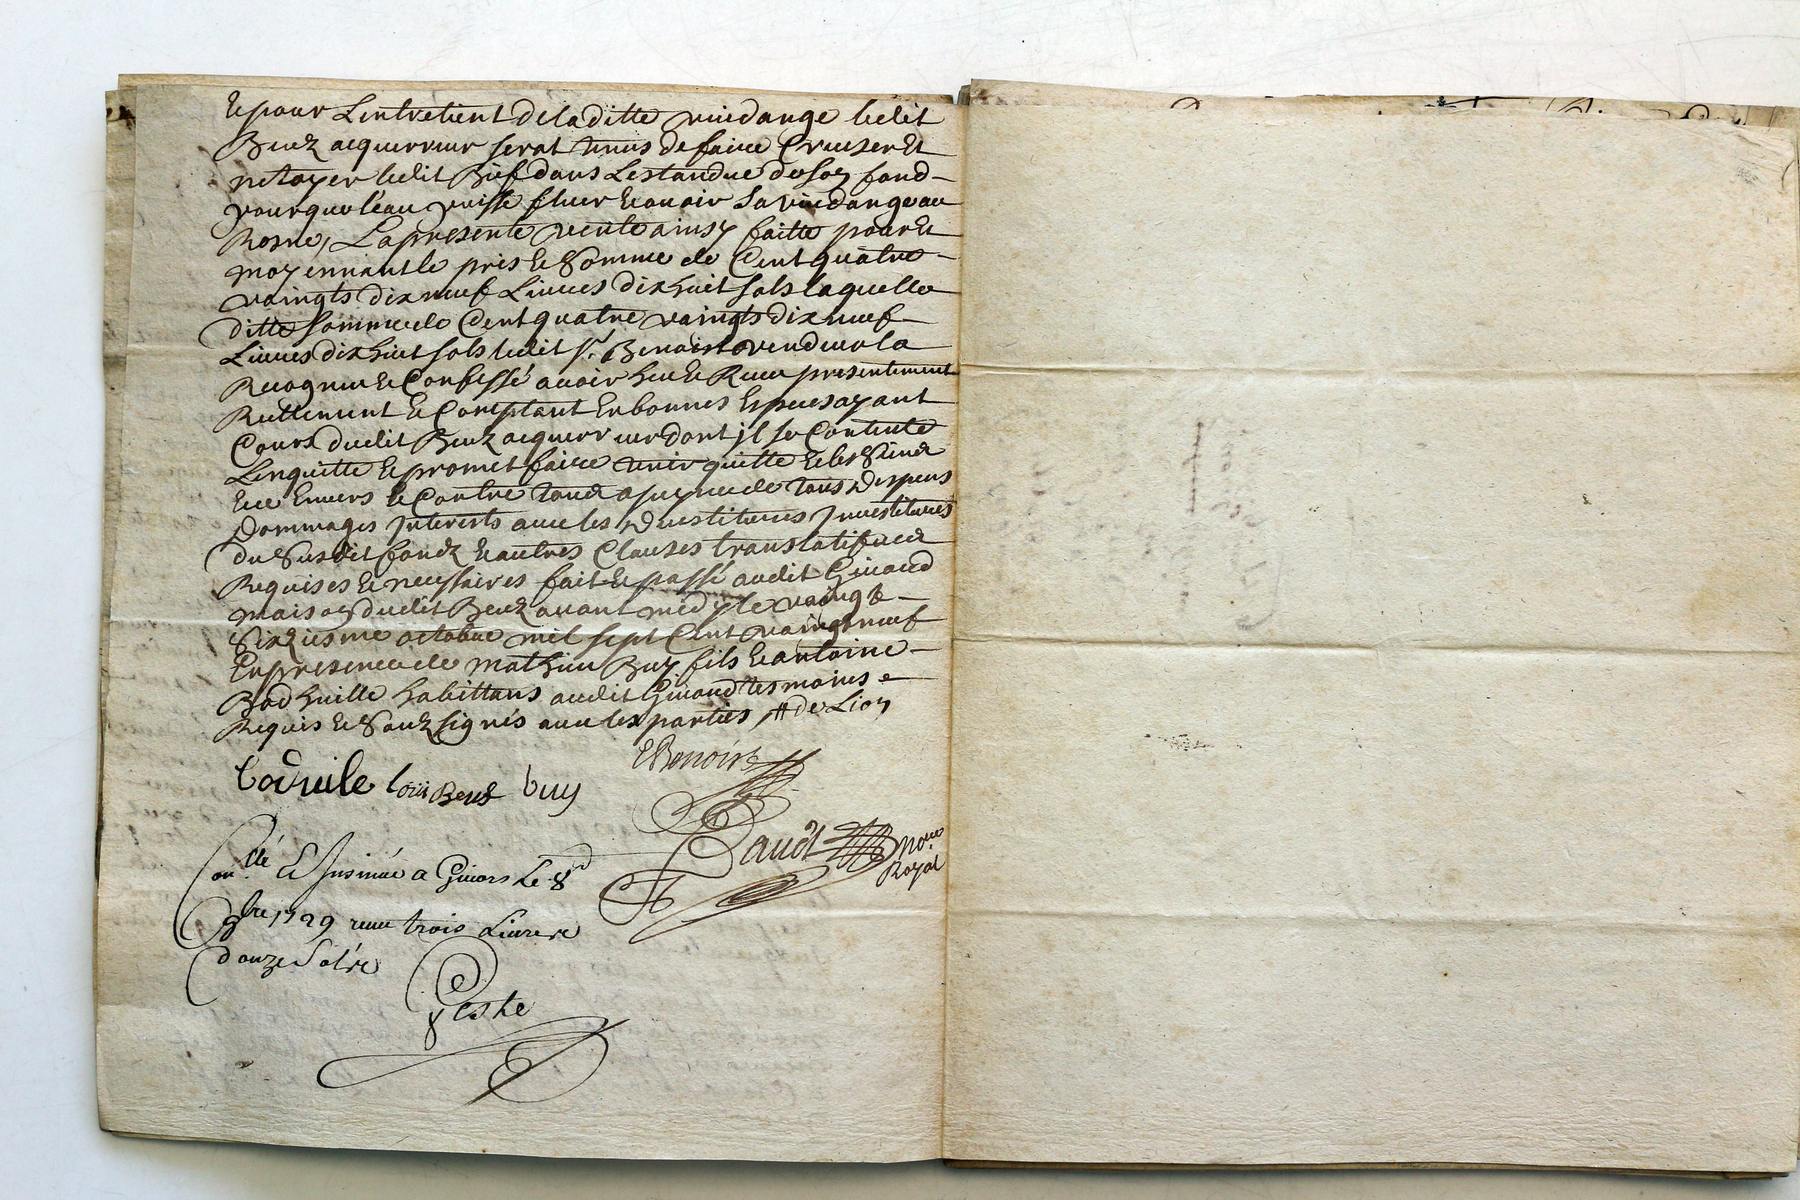 Et pour Lentretient de laditte vuidange ledit
Beuz acquerreur serat tenus de faire Creuser Et
netoyer ledit Bief dans Lestandue de son fond
pour que léau puisse fluer Et avoir sa vuidange au
Rosne, La presente vente ainsy faitte pour Et
moyennant le pris Et Somme de Cent quatre
vaingts dix neuf Livres dix huit sols laquelle
ditte somme de Cent quatre vaingts dix neuf
Livres dix huit sols ledit Sr. Benoist vendeur la
Recogneu Et Confessé avoir heu Et Receu presentement
Reellement Et Comptant En bonnes Especes ayant
Cours dudit Beuz acquerreur dont jl se Contente
Lenquitte Et promet faire tenir quitte Et les Siens
Envers Et Contre tous a peyne de tous Despens
Dommages jnterests avec les Devestitures jnvestitures
du Susdit fondz Et autres Clauses translatives
Requises Et necessaires fait Et passé audit Givord
maison dudit Beuz avant midy le vaingt
Sixziesme octobre mil sept Cent vaingt neuf
En presence de mathieu Buy fils Et antoine
Bodhuille habittans audit Givord tesmoins
Requis Et Soubz signés avec les parties, # de Lion
boduile loüis Beuz buy
EBenoist
Baudt nore
Royal
Con.llé Et Jnsinué a Givors Le 8
bre 1729 receu trois Livres
douze Sols
Peste